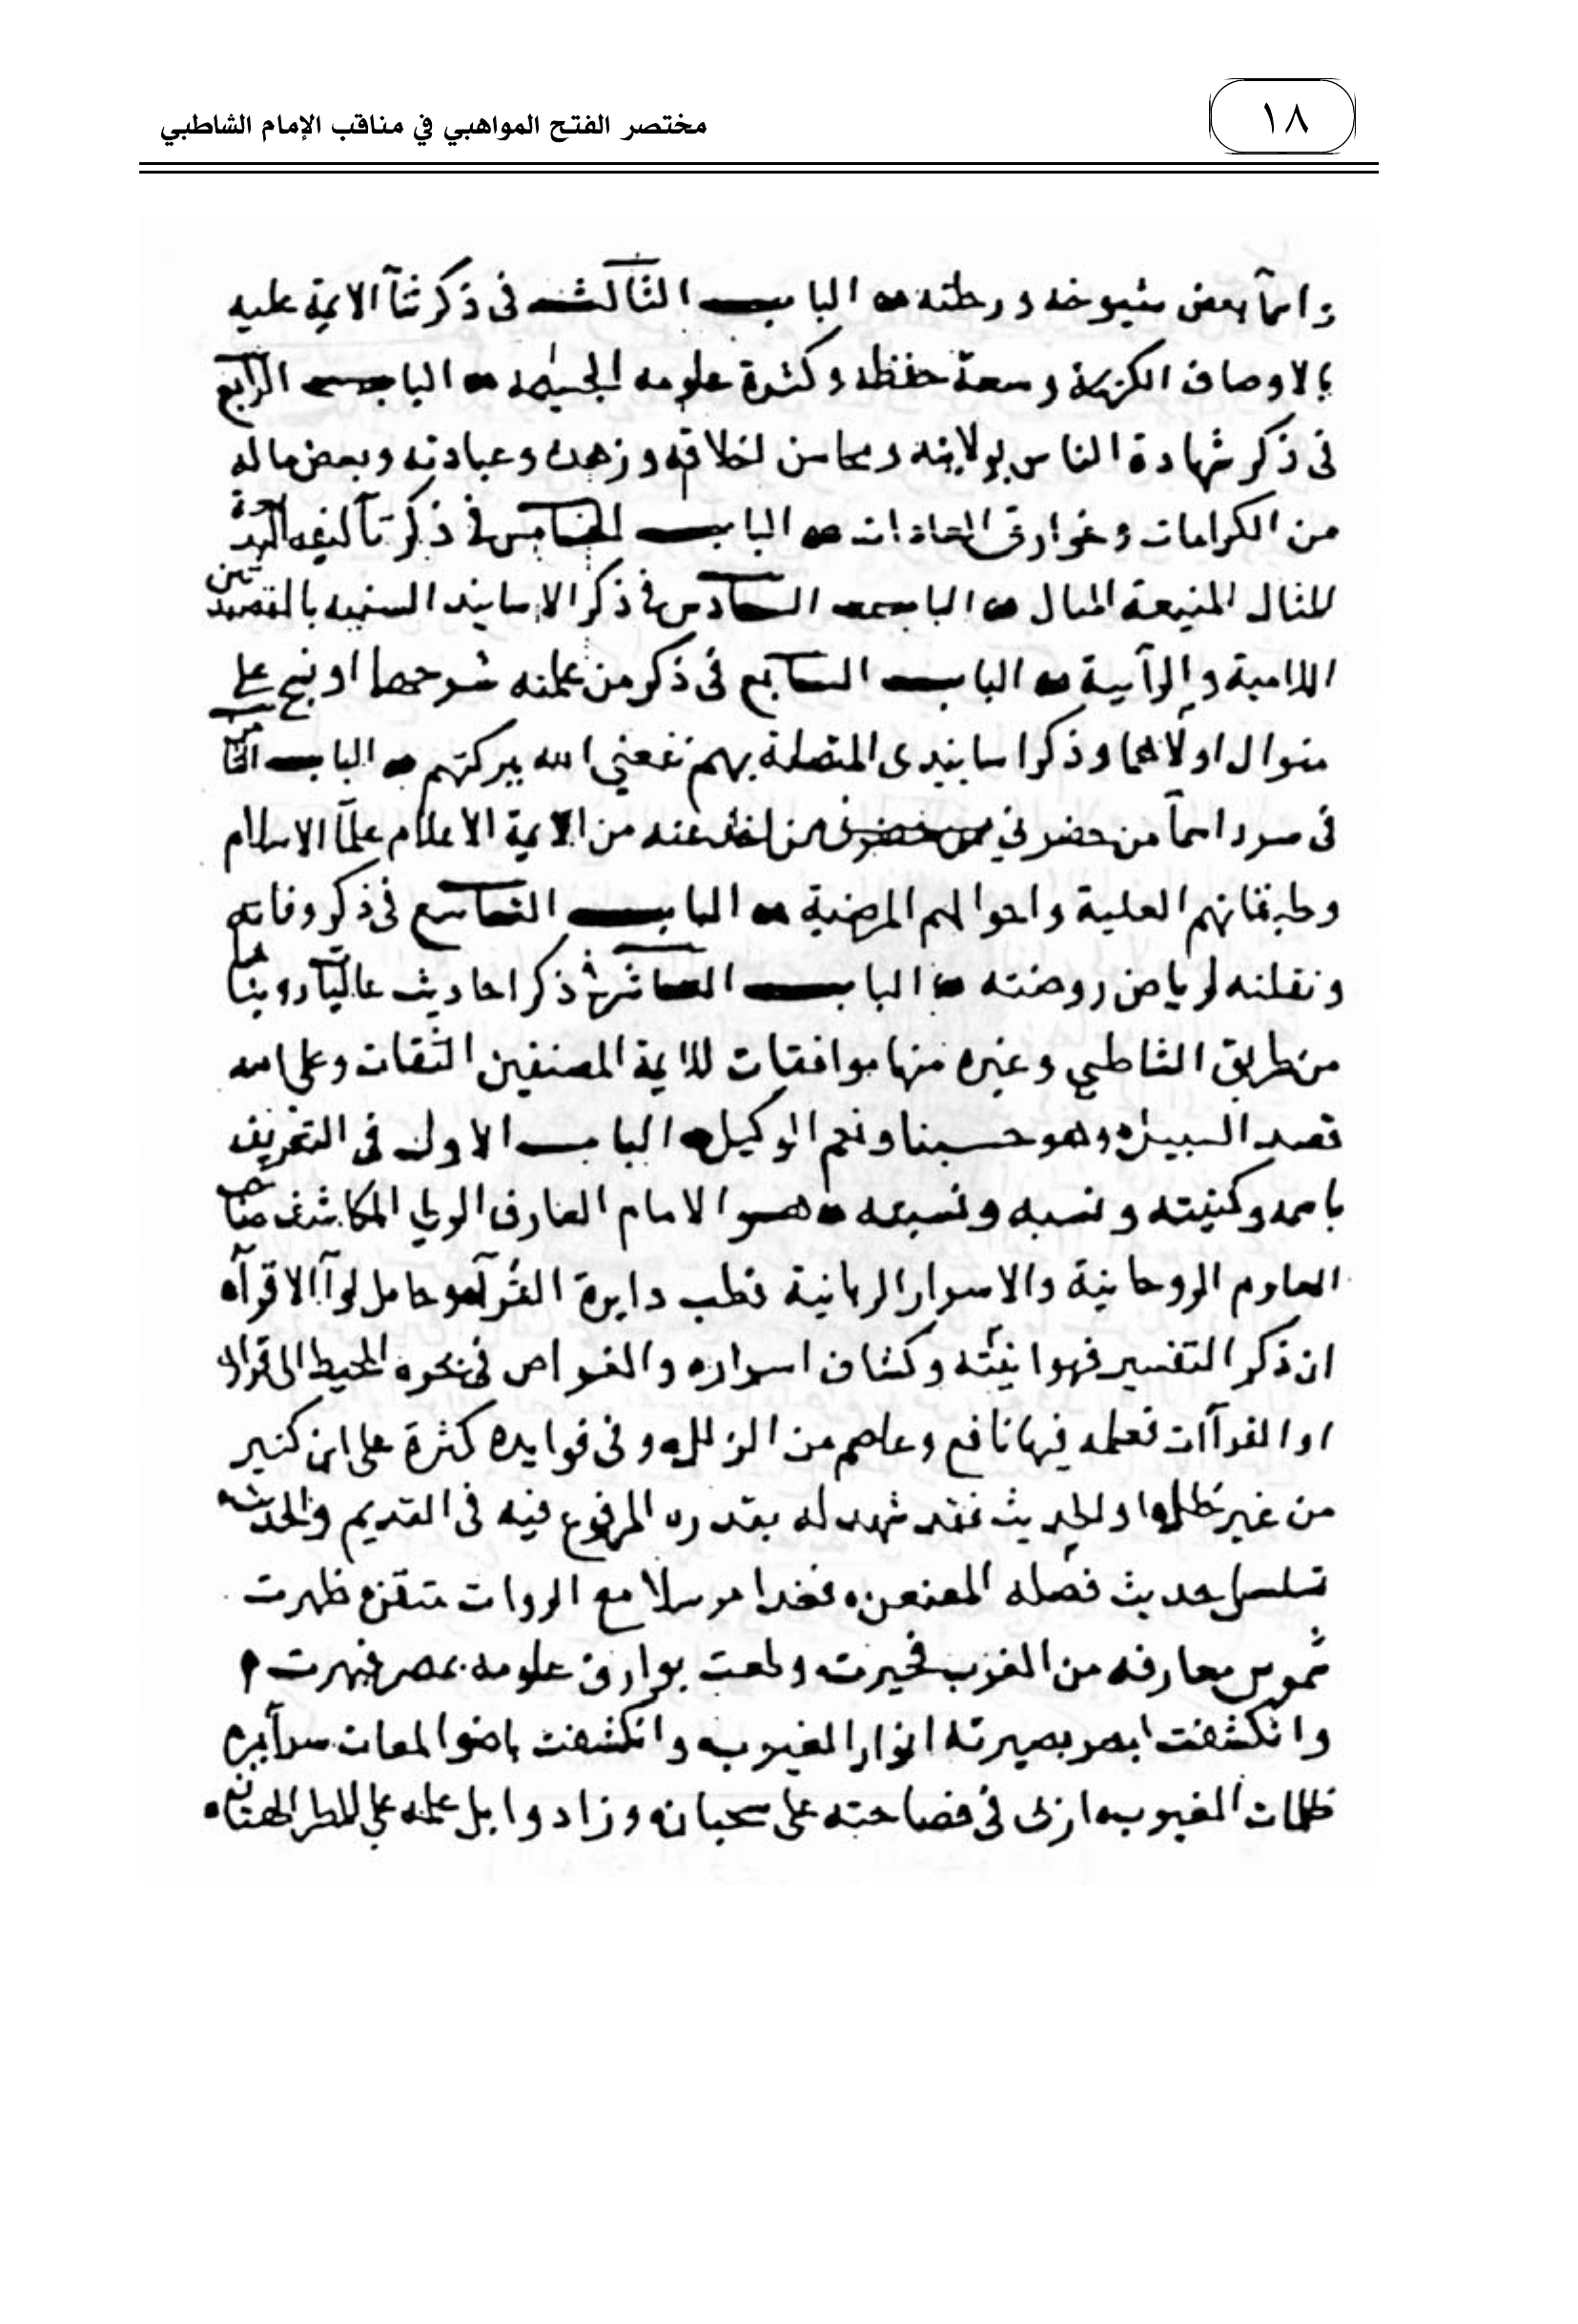 مختصر الفتح المواهبي في مناقب الإمام الشاطبي
١٨
واسمآ بعض شيوخه ورحلته الباب الثالث فى ذكر ثنآ الايمة عليه
بالاوصاف الكريمة وسعة حفظه وكثرة علومه الجسيمه الباب الرابع
فى ذكر شهادة الناس بولايته ومحاسن اخلاقه وزهده وعبادته وبعض ماله
من الكرامات وخوارق العادات الباب الخامس فى ذكر تآليفه البديعة
المثال المنيعة المنال الباب السادس فى ذكر الاسانيد السنيه بالقصيدتين
اللامية والرآيية الباب السابع فى ذكر من علمته شرحهما او نسج على
منوال اولاهما وذكر اسانيدى المتصلة بهم نفعني الله ببركتهم الباب الثا
فى سرد اسمآ من حضرني ممن اخذ عنه من الايمة الاعلام علمآ الاسلام
وطبقاتهم العلية واحوالهم المرضية الباب التاسع فى ذكر وفاته
ونقلته لرياض روضته الباب العاشر فى ذكر احاديث عاليات رويناها
من طريق الشاطبي وغيره منها موافقات للايمة المصنفين الثقات وعلى الله
قصد السبيل وهو حسبنا ونعم الوكيل الباب الاول فى التعريف
باسمه وكنيته ونسبه هو الامام العارف الولي المكاشف صاحب
العلوم الروحانية والاسرار الربانية قطب دايرة القرآ وحامل لوآ الاقرآ
ان ذكر التفسير فهو وكشاف اسراره والغواص فى بحره المحيط
او القرآات فعلمه فيها نافع وعاصم من الزلل وفى فوايده كثرة على ابن كثير
من غير خلل او الحديث فقد شهد له بقدره المرفوع فيه فى القديم والحديث
تسلسل حديث فضله المعنعن فغدا مرسلا مع الروات متقن ظهرت
شموس معارفه من المغرب فحيرت ولمعت بوارق علومه بمصر فبهرت
وانكشفت لبصر بصيرته انوار الغيوب وانكشفت باضوا لمعات سرآيره
ظلمات الغيوب ازرى فى فصاحته على سحبان وزاد وابل علمه على المطر الهتان